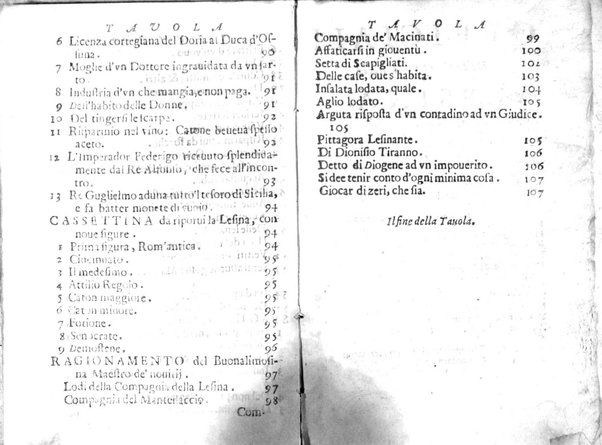 TAVOLA
6 Licenza cortegiana del Doria al Duca d'Os-
suna. 90
7 Moglie d'vn Dottore ingrauidata da vn sar-
to. 91
8 Industria d'vn che mangia, e non paga. 91
9 Dell'habito delle Donne. 91
10 Del tingersi le scarpe. 92
11 Risparmio nel vino: Catone beueua spesso
aceto. 92
12 L'Imperador Federigo riceuuto splendida-
mente dal Re Alfonso, che fece all'incon-
tro. 93
13 Re Guglielmo aduna tutto'l tesoro di Sicilia,
e fa batter monete di cuoio. 94
CASSETTINA da riporui la Lesina, con
noue figure. 94
1 Prima figura, Rom'antica. 94
2 Cincinnato. 95
3 Il medesimo. 95
4 Attilio Regolo. 95
5 Caton maggiore. 95
6 Caton minore. 95
7 Focione. 95
8 Senocrate. 95
9 Demostene. 96
RAGIONAMENTO del Buonalimosi-
na Maestro de' nouitij. 97
Lodi della Compagnia della Lesina. 97
Compagnia del Mantellaccio. 98
Com-
TAVOLA
Compagnia de' Macinati. 99
Affaticarsi in giouentù. 100
Setta di Scapigliati. 102
Delle case, oue s'habita. 103
Insalata lodata, quale. 104
Aglio lodato. 105
Arguta risposta d'vn contadino ad vn Giudice.
105
Pittagora Lesinante. 105
Di Dionisio Tiranno. 106
Detto di Diogene ad vn impouerito. 106
Si dee tenir conto d'ogni minima cosa. 107
Giocar di zeri, che sia. 107
Il fine della Tauola.